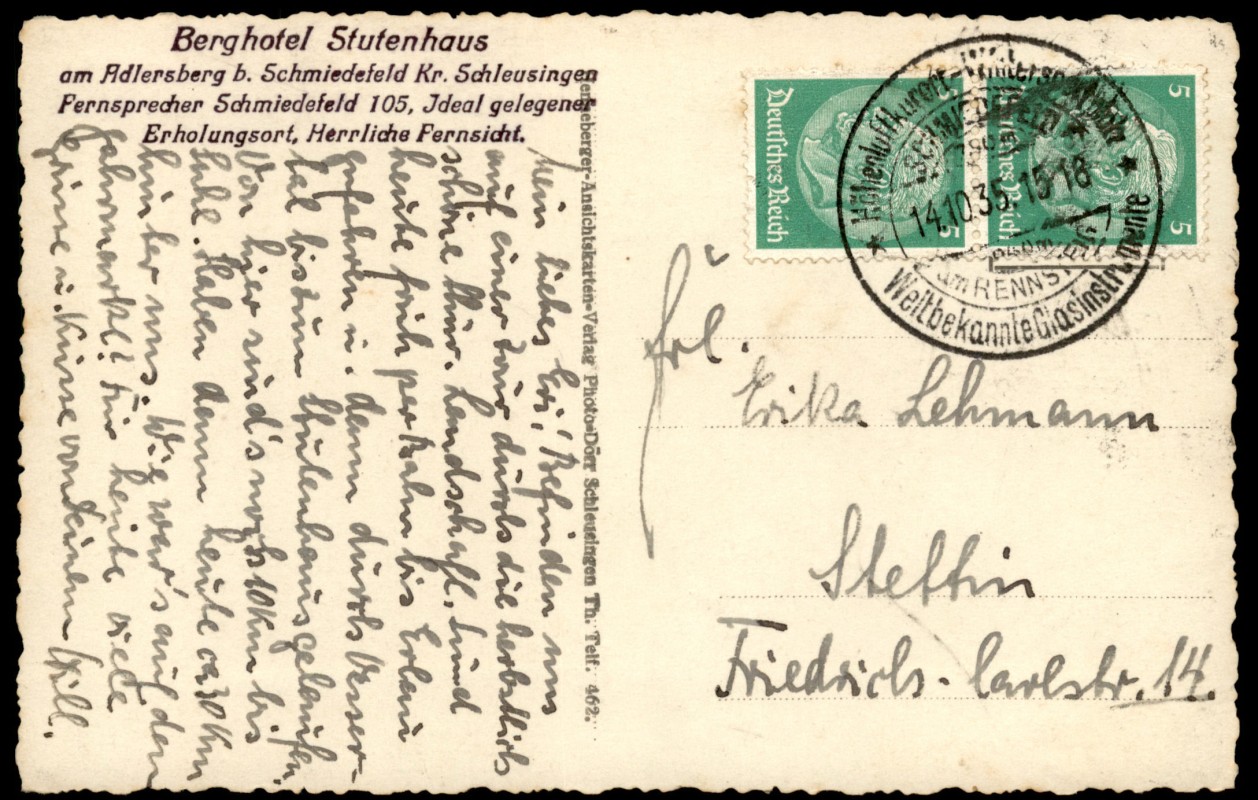 Berghotel Stutenhaus
am Adlersberg b. Schmiedefeld Kr. Schleusingen
Fernsprecher Schmiedefeld 105, Ideal gelegener
Erholungsort, Herrliche Fernsicht.
Mein liebes Evi! Befinden uns
auf einer Tour durch die herbstlich
schöne Thür. Landschaft. Sind
heute früh per Bahn bis Erlau
gefahren u. dann durchs Vesser-
tal bis zum Stutenhaus gelaufen.
Von hier sind's noch 10 Km bis
Suhl. Haben dann heute ca 30 Km
hinter uns. Wie war's auf dem
Jahrmarkt? Für heute viele
Grüsse u. Küsse von Deinem Will.
Henneberger-Ansichtskarten-Verlag Photo-Dörr Schleusingen Th. Telf. 462.
5 Deutsches Reich 5
5 Deutsches Reich 5
Höhenluftkurort-Wintersportplatz
SCHMIEDEFELD
14.10.35.15-18
am RENNSTEIG
Weltbekannte Glasinstrumente
Frl.
Erika Lehmann
Stettin
Friedrich-Carlstr. 14.